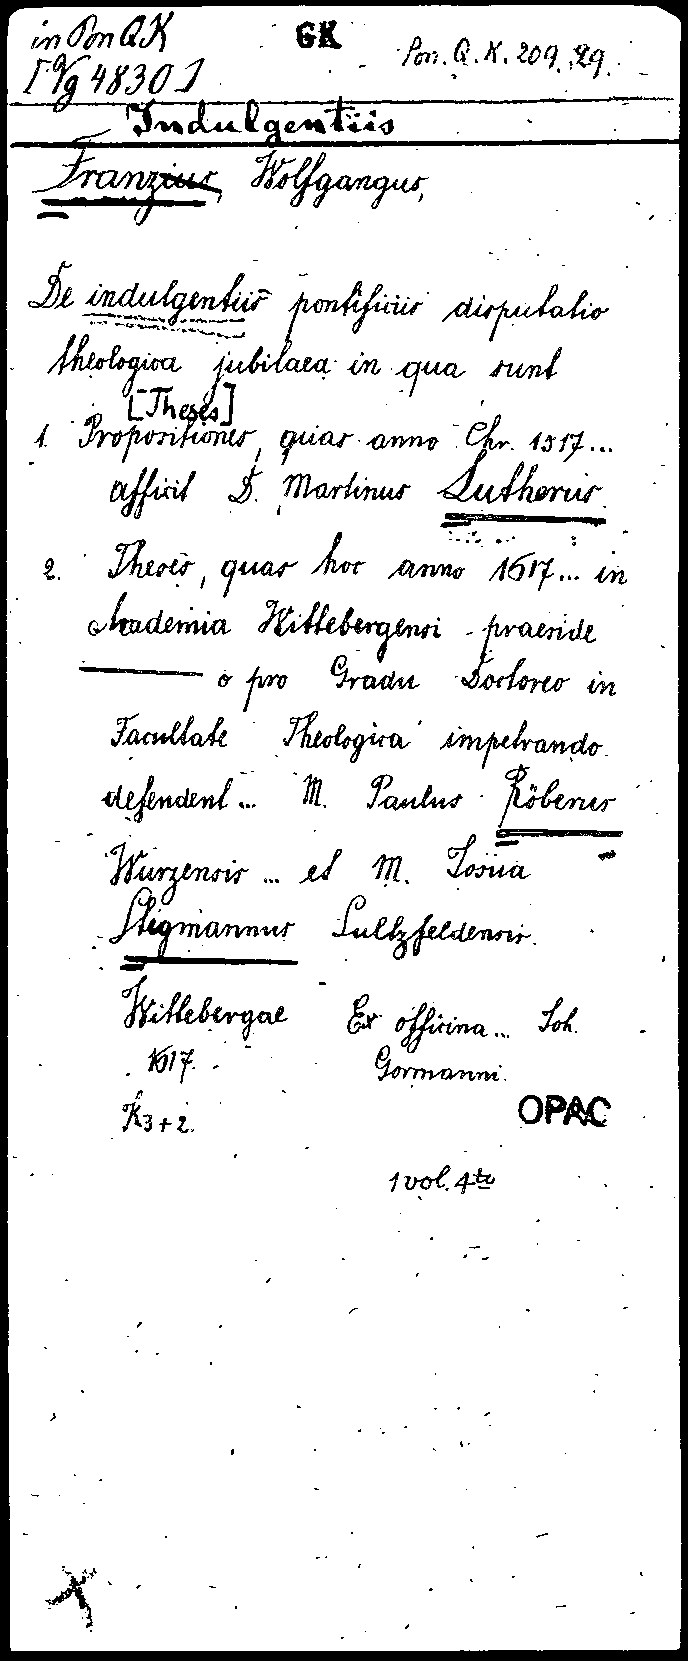 in Pon QK
GK
Pon. Q. K. 209, 29.
[Vg 4830]
Indulgentiis
Franzius, Wolfgangus,
De indulgentiis pontificiis disputatio
theologica jubilaea in qua sunt
[Theses]
1. Propositiones, quas anno Chr. 1517...
affixit D. Martinus Lutherus.
2. Theses, quas hoc anno 1617... in
Academia Wittebergensi praeside
——— o pro Gradu Doctoreo in
Facultate Theologica impetrando
defendent... M. Paulus Röberus
Wurzensis... et M. Josua
Stegmannus Sultzfeldensis.
Wittebergae Ex officina... Joh.
1617. Gormanni.
K3+2.
OPAC
1 vol. 4to